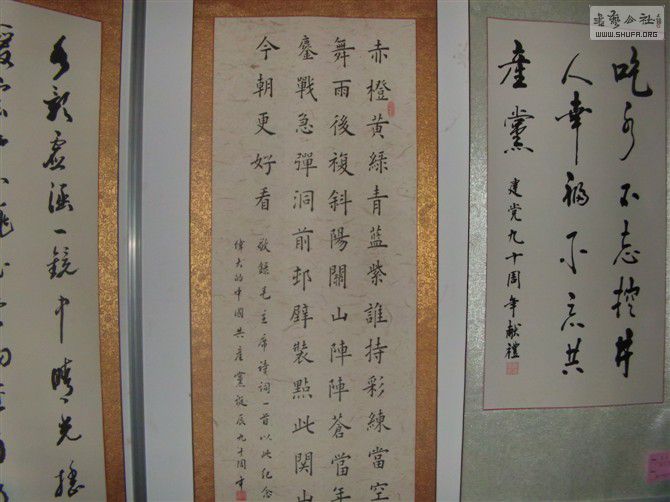 書藝公社
WWW.SHUFA.ORG
吃水不忘挖井
人幸福不忘共
產黨
建党九十周年献禮
赤橙黃綠青藍紫誰持彩練當空
舞雨後複斜陽關山陣陣蒼當年
鏖戰急彈洞前邨壁裝點此關山
今朝更好看
敬錄毛主席詩詞一首以此纪念
偉大的中國共產黨誕辰九十周年
水影虛涵一鏡中晴光搖